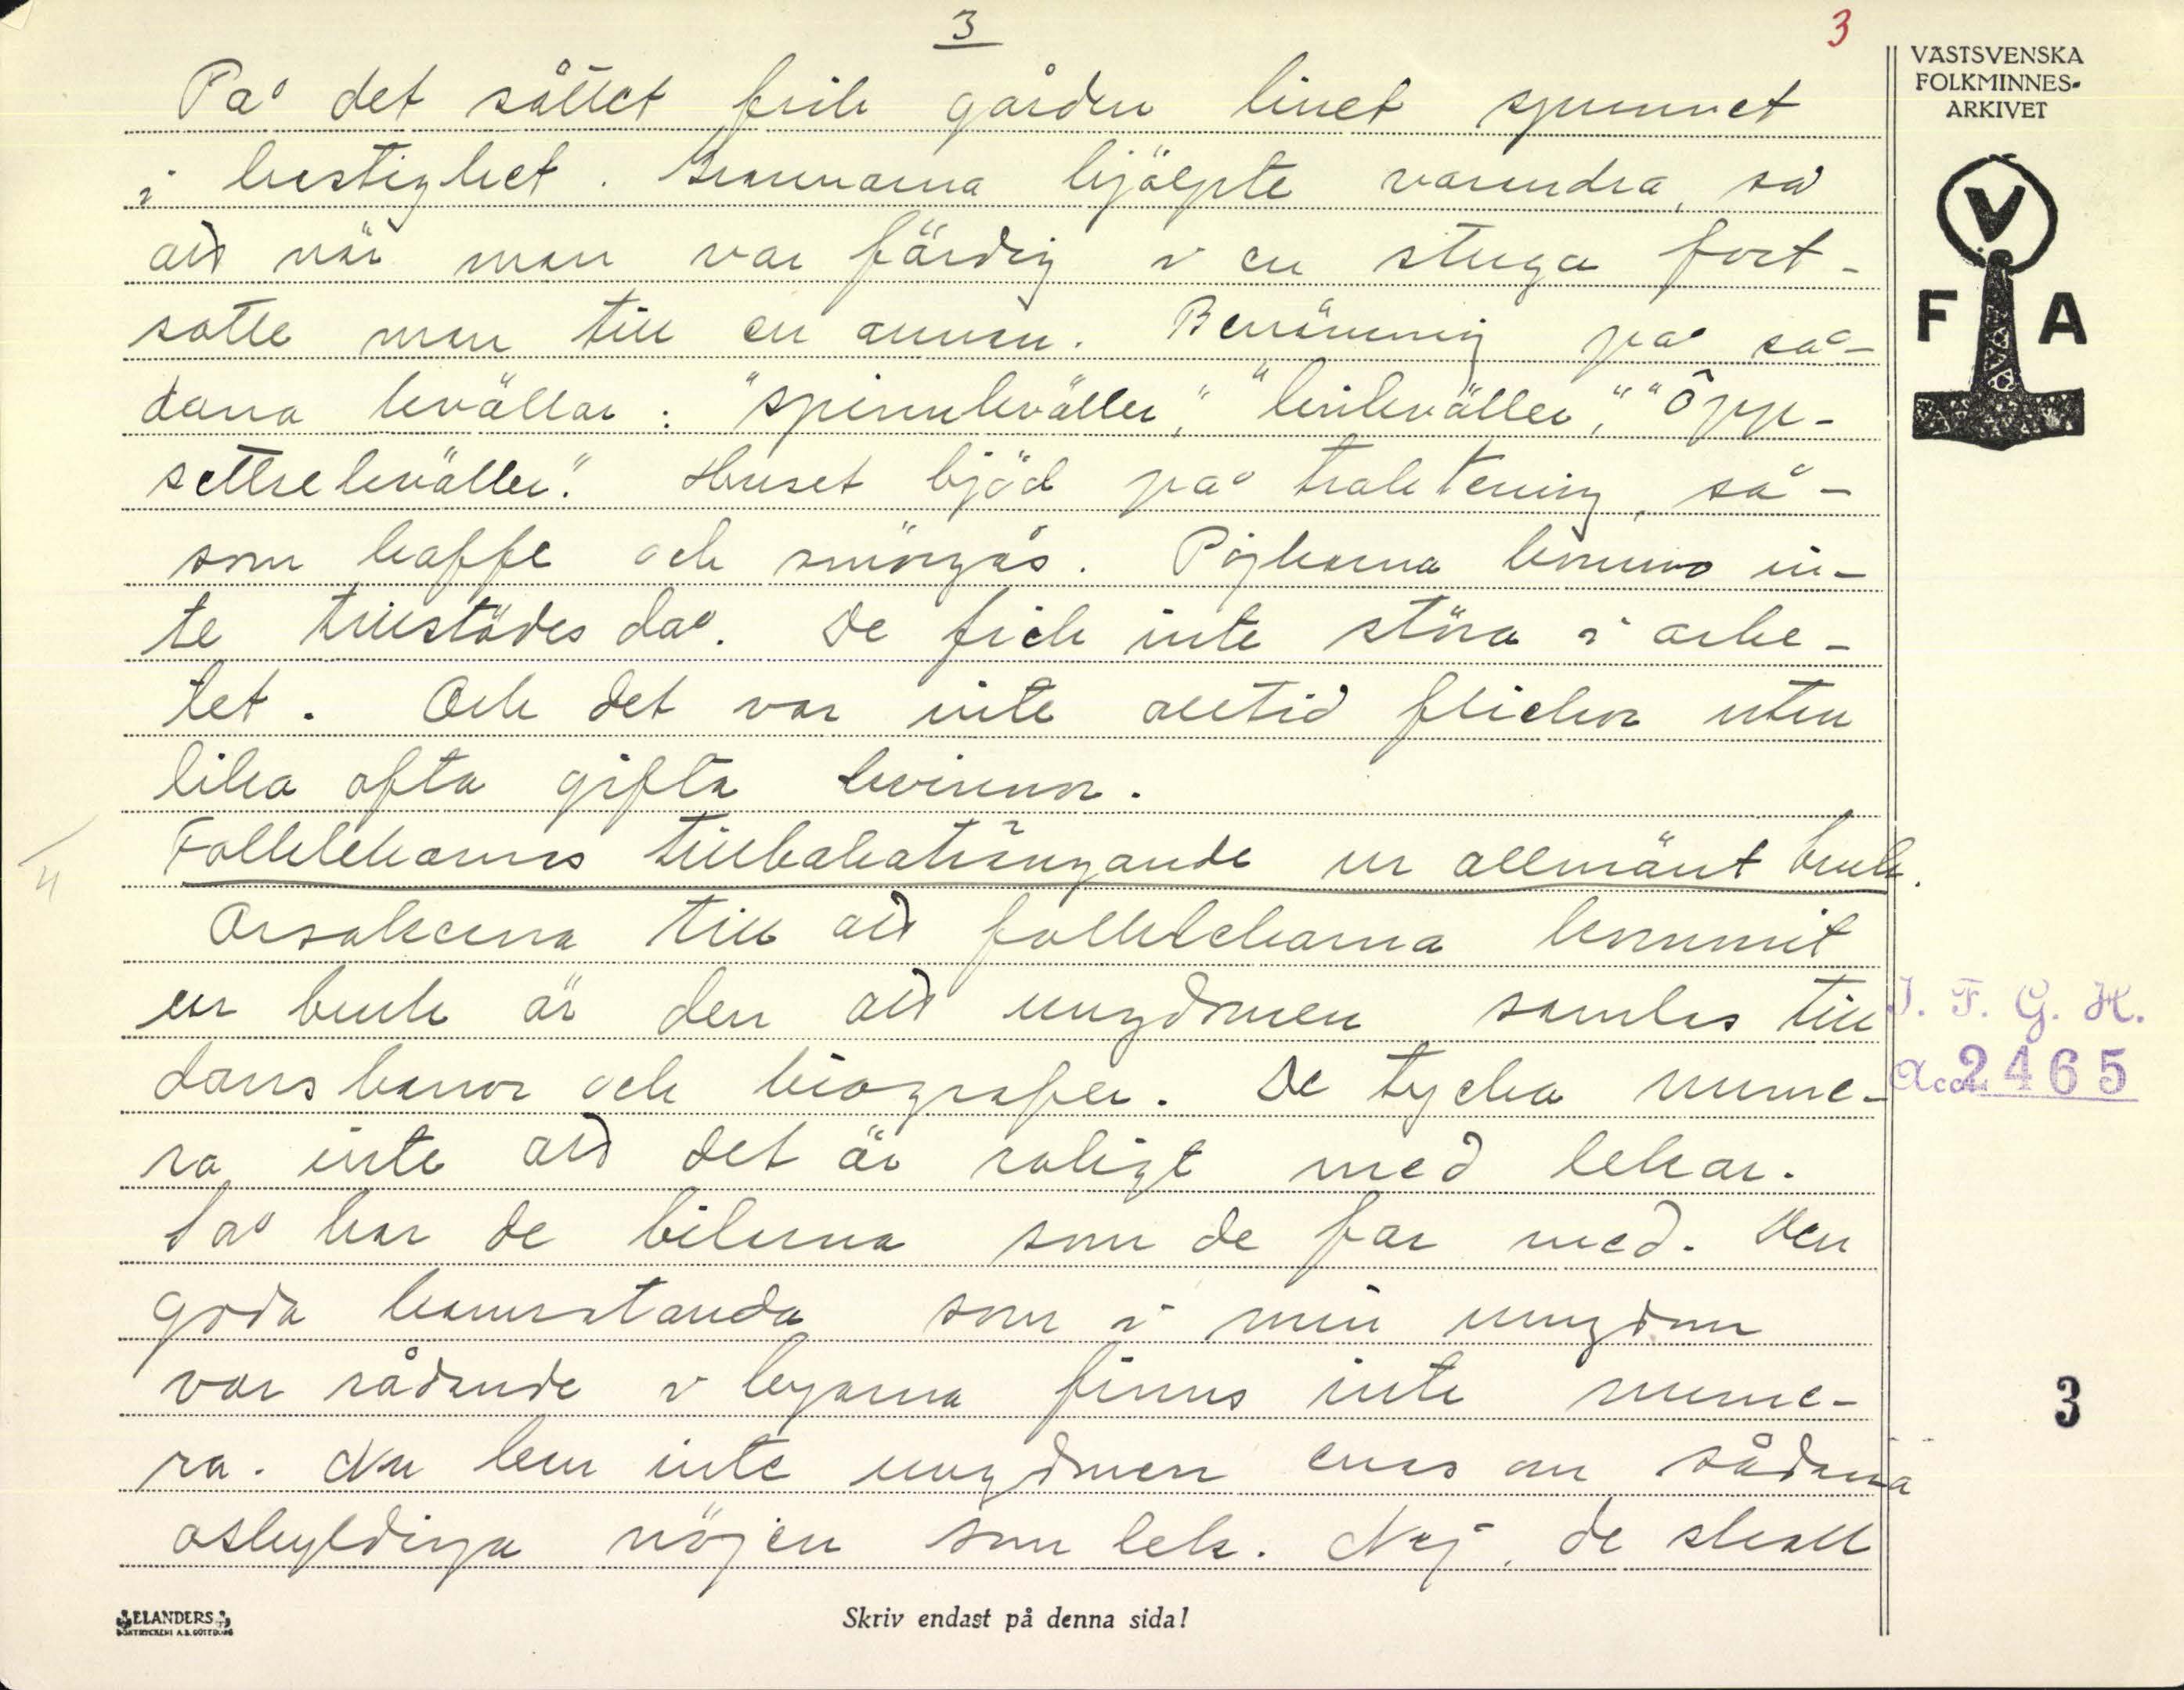 3
3
VÄSTSVENSKA
FOLKMINNES-
ARKIVET
V
F A
På det sättet fick gården linet spunnet
i hastighet. Grannarna hjälpte varandra, så
att när man var färdig i en stuga fort-
satte man till en annan. Benämning på så-
dana kvällar: "spinnkväller," "linkväller," "öpp-
settrekväller". Huset bjöd på traktering, så-
som kaffe och smörgås. Pojkarna kommo in-
te tillstädes då. De fick inte störa i arbe-
tet. Och det var inte alltid flickor utan
lika ofta gifta kvinnor.
4
Folklekarnas tillbakaträngande ur allmänt bruk.
Orsakerna till att folklekarna kommit
ur bruk är den att ungdomen samlas till
dansbanor och biografer. De tycka nume-
ra inte att det är roligt med lekar.
Så har de bilarna som de far med. Den
goda kamratanda som i min ungdom
var rådande i byarna finns inte nume-
ra. Nu kan inte ungdomen enas om sådana
oskyldiga nöjen som lek. Nej, de skall
I. F. G. H.
Acc. 2465
3
ELANDERS
BOKTRYCKERI A.B. GÖTEBORG
Skriv endast på denna sida!